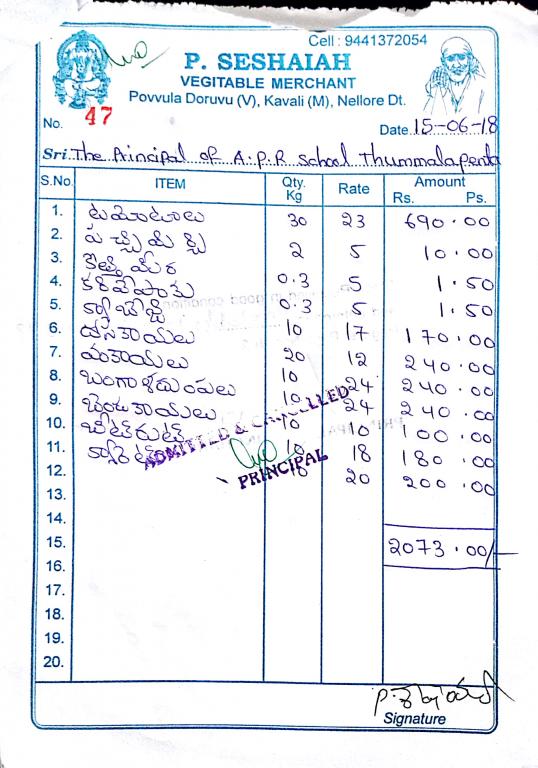 Cell : 9441372054
P. SESHAIAH
VEGITABLE MERCHANT
Povvula Doruvu (V), Kavali (M), Nellore Dt.
No. 47 Date 15-06-18
Sri. The Principal of A.P.R School Thummalapenta
S.No. ITEM Qty. Kg Rate Amount Rs. Ps.
1. టమోటాలు 30 23 690.00
2. పచ్చిమిర్చి 2 5 10.00
3. కొత్తిమీర 0.3 5 1.50
4. కరివేపాకు 0.3 5 1.50
5. క్యాబేజి 10 17 170.00
6. దోసకాయలు 20 12 240.00
7. వంకాయలు 10 24 240.00
8. బంగాళదుంపలు 10 24 240.00
9. బెండకాయలు 10 10 100.00
10. బీట్‌రూట్ 10 18 180.00
11. క్యారెట్ 10 20 200.00
12.
13.
14.
15. 2073.00/-
16.
17.
18.
19.
20.
ADMITTED & CANCELLED
PRINCIPAL
Signature